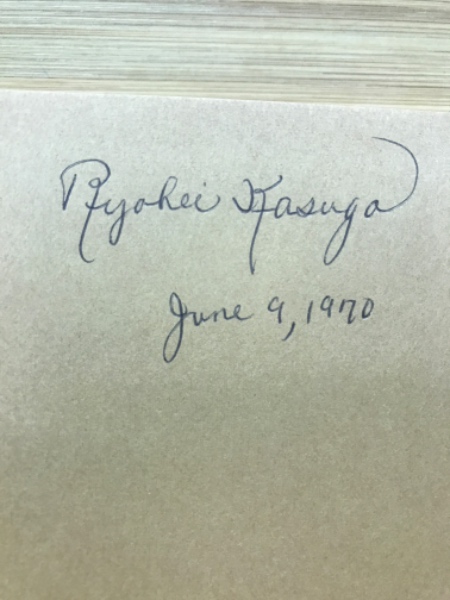 Ryohei Kasuga
June 9, 1970